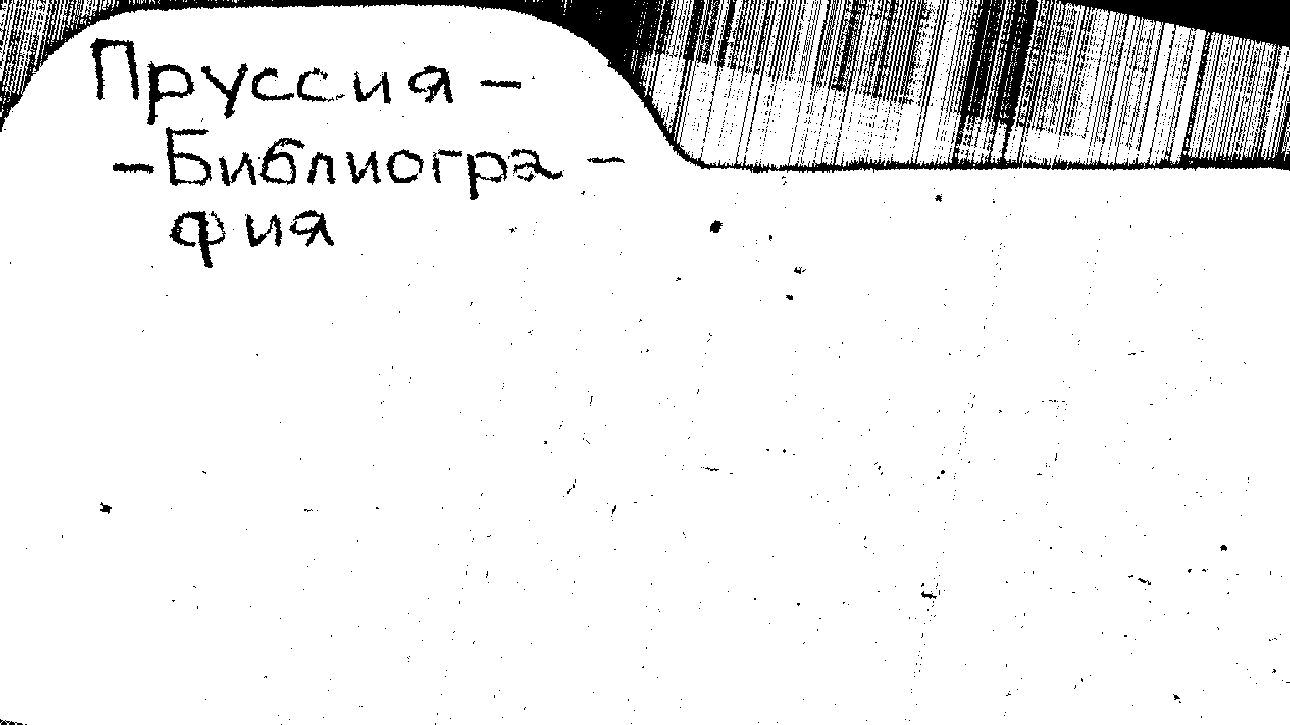 Пруссия –
– Библиогра –
фия